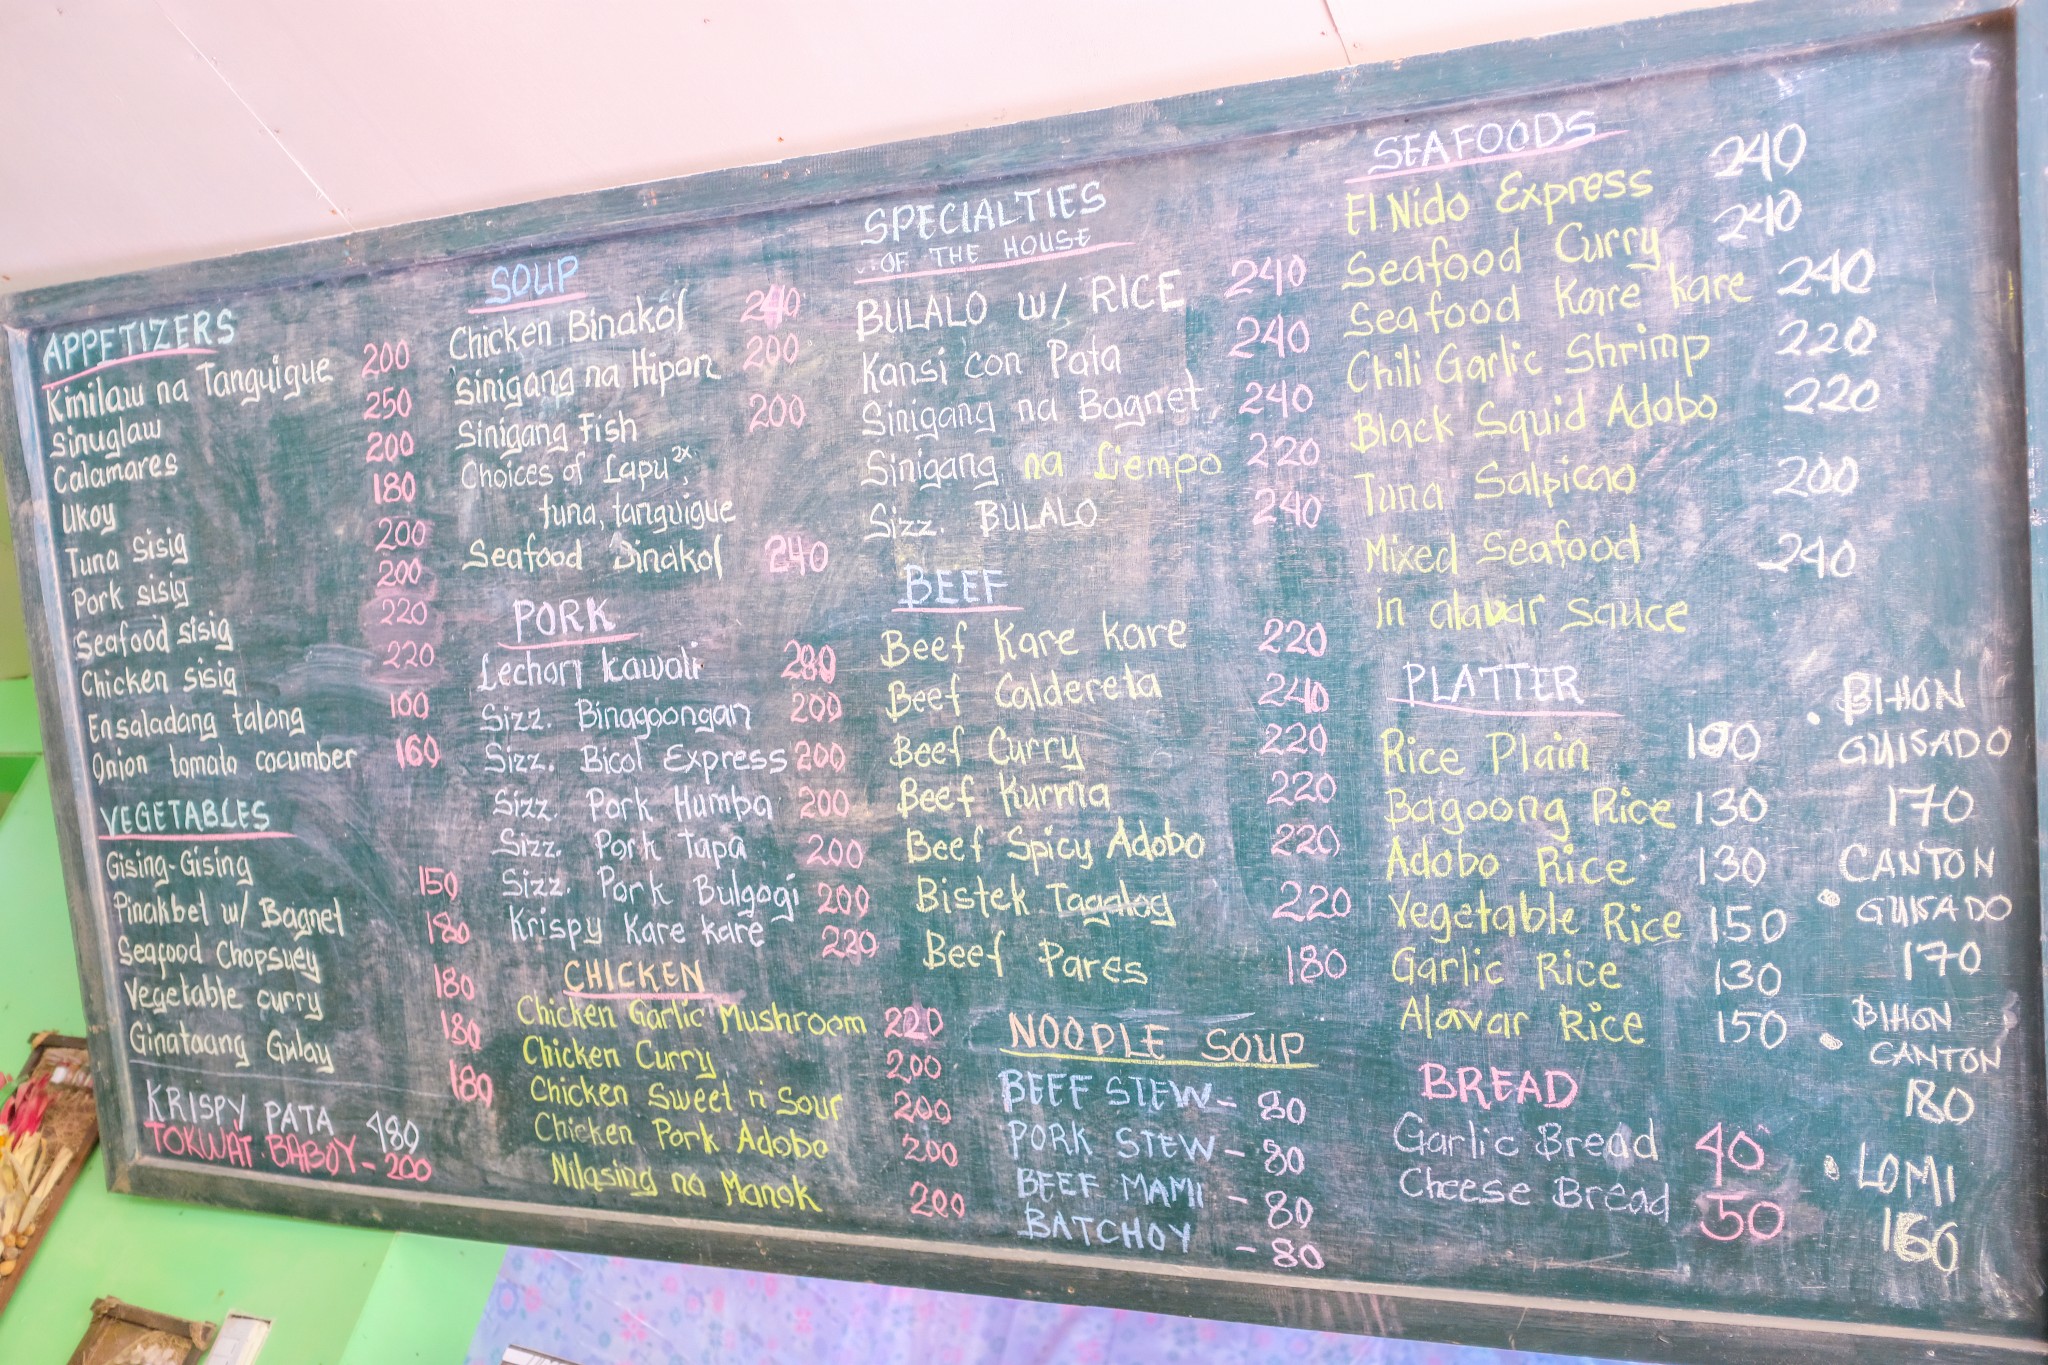 APPETIZERS
Kinilaw na Tanguigue 200
Sinuglaw 250
Calamares 200
Ukoy 180
Tuna Sisig 200
Pork sisig 200
Seafood sisig 220
Chicken sisig 220
Ensaladang talong 100
Onion tomato cocumber 160
VEGETABLES
Gising-Gising 150
Pinakbet w/ Bagnet 180
Seafood Chopsuey 180
Vegetable curry 180
Ginataang Gulay 180
KRISPY PATA 480
TOKWA'T BABOY - 200
SOUP
Chicken Binakol 240
Sinigang na Hipon 200
Sinigang Fish 200
Choices of Lapu 2x,
tuna, tanguigue
Seafood Binakol 240
PORK
Lechon kawali 280
Sizz. Binagoongan 200
Sizz. Bicol Express 200
Sizz. Pork Humba 200
Sizz. Pork Tapa 200
Sizz. Pork Bulgogi 200
Krispy Kare kare 220
CHICKEN
Chicken Garlic Mushroom 220
Chicken Curry 200
Chicken Sweet n Sour 200
Chicken Pork Adobo 200
Nilasing na Manok 200
SPECIALTIES
OF THE HOUSE
BULALO W/ RICE 240
Kansi con Pata 240
Sinigang na Bagnet 240
Sinigang na Liempo 220
Sizz. BULALO 240
BEEF
Beef Kare kare 220
Beef Caldereta 240
Beef Curry 220
Beef Kurma 220
Beef Spicy Adobo 220
Bistek Tagalog 220
Beef Pares 180
NOODLE SOUP
BEEF STEW - 80
PORK STEW - 80
BEEF MAMI - 80
BATCHOY - 80
SEAFOODS
El Nido Express 240
Seafood Curry 240
Seafood Kare kare 240
Chili Garlic Shrimp 220
Black Squid Adobo 220
Tuna Salpicao 200
Mixed Seafood 240
in alavar sauce
PLATTER
Rice Plain 100
Bagoong Rice 130
Adobo Rice 130
Vegetable Rice 150
Garlic Rice 130
Alavar Rice 150
BREAD
Garlic Bread 40
Cheese Bread 50
• BIHON
GUISADO
170
• CANTON
GUISADO
170
• BIHON
CANTON
180
• LOMI
160